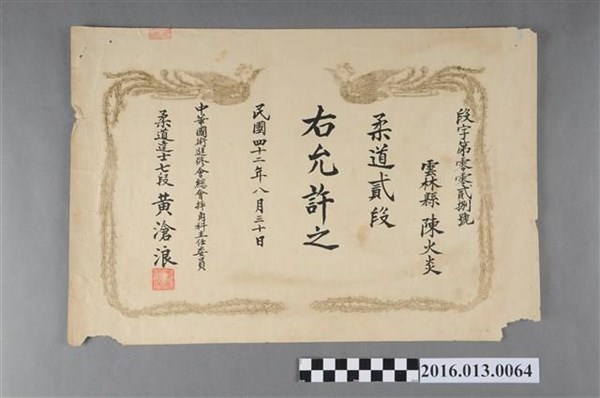 段字第零零貳捌號
雲林縣 陳火炎
柔道貳段
右允許之
民國四十二年八月三十日
中華國術進修會總會柔角科主任委員
柔道達士七段 黃滄浪
2016.013.0064